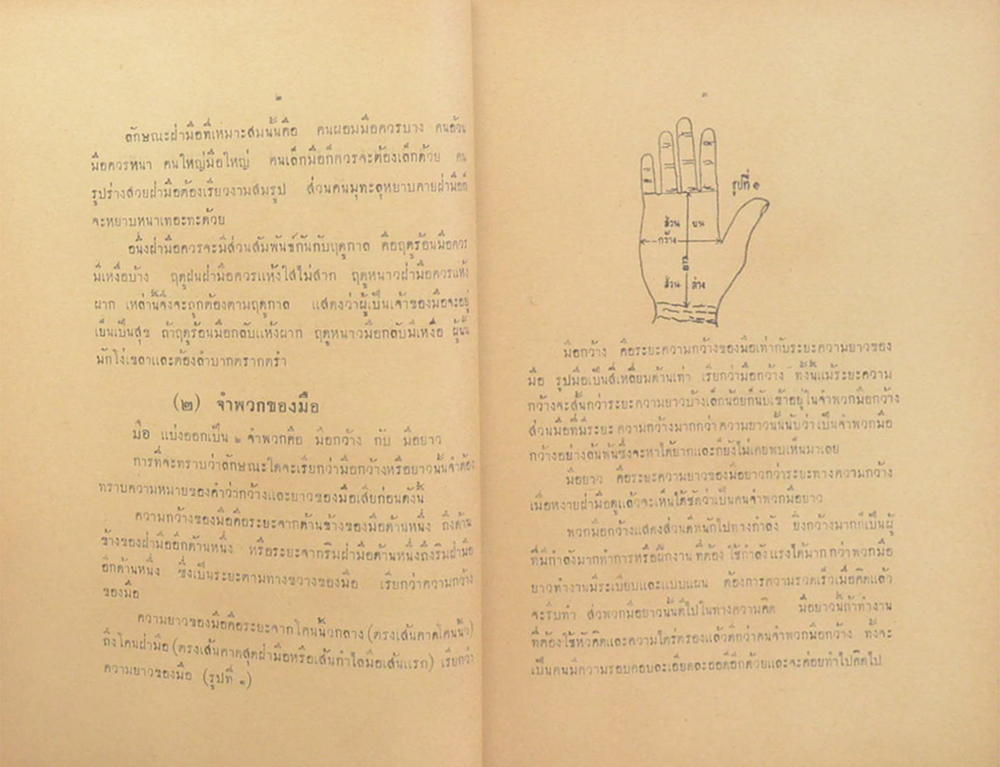 ๒
ลักษณะฝ่ามือที่เหมาะสมนั้นคือ คนผอมมือควรบาง คนอ้วน
มือควรหนา คนใหญ่มือใหญ่ คนเล็กมือก็ควรจะต้องเล็กด้วย คน
รูปร่างสวยฝ่ามือต้องเรียวงามสมรูป ส่วนคนมุทะลุหยาบคายฝ่ามือก็
จะหยาบหนาเทอะทะด้วย
อนึ่งฝ่ามือควรจะมีส่วนสัมพันธ์กันกับฤดูกาล คือฤดูร้อนมือควร
มีเหงื่อบ้าง ฤดูฝนฝ่ามือควรแห้งใสไม่สาก ฤดูหนาวฝ่ามือควรแห้ง
ผาก เหล่านี้จึงจะถูกต้องตามฤดูกาล แสดงว่าผู้เป็นเจ้าของมือจะอยู่
เย็นเป็นสุข ถ้าฤดูร้อนมือกลับแห้งผาก ฤดูหนาวมือกลับมีเหงื่อ ผู้นั้น
มักโง่เขลาและต้องลำบากตรากตรำ
(๒) จำพวกของมือ
มือ แบ่งออกเป็น ๒ จำพวกคือ มือกว้าง กับ มือยาว
การที่จะทราบว่าลักษณะใดจะเรียกว่ามือกว้างหรือยาวนั้นจำต้อง
ทราบความหมายของคำว่ากว้างและยาวของมือเสียก่อนดังนี้
ความกว้างของมือคือระยะจากด้านข้างของมือด้านหนึ่ง ถึงด้าน
ข้างของฝ่ามืออีกด้านหนึ่ง หรือระยะจากริมฝ่ามือด้านหนึ่งถึงริมฝ่ามือ
อีกด้านหนึ่ง ซึ่งเป็นระยะตามทางขวางของมือ เรียกว่าความกว้าง
ของมือ
ความยาวของมือคือระยะจากโคนนิ้วกลาง (ตรงเส้นคาดโคนนิ้ว)
ถึงโคนฝ่ามือ (ตรงเส้นคาดสุดฝ่ามือหรือเส้นกำไลมือเส้นแรก) เรียกว่า
ความยาวของมือ (รูปที่ ๑)
๓
รูปที่ ๑
ส่วน บน
กว้าง
ยาว
ส่วน ล่าง
มือกว้าง คือระยะความกว้างของมือเท่ากับระยะความยาวของ
มือ รูปมือเป็นสี่เหลี่ยมด้านเท่า เรียกว่ามือกว้าง ทั้งนี้แม้ระยะความ
กว้างจะสั้นกว่าระยะความยาวบ้างเล็กน้อยก็นับเข้าอยู่ในจำพวกมือกว้าง
ส่วนมือที่มีระยะความกว้างมากกว่าความยาวนั้นนับว่าเป็นจำพวกมือ
กว้างอย่างล้นพ้นซึ่งจะหาได้ยากและก็ยังไม่เคยพบเห็นมาเลย
มือยาว คือระยะความยาวของมือยาวกว่าระยะทางความกว้าง
เมื่อหงายฝ่ามือดูแล้วจะเห็นได้ชัดว่าเป็นคนจำพวกมือยาว
พวกมือกว้างแสดงส่วนดีหนักไปทางกำลัง ยิ่งกว้างมากก็เป็นผู้
ที่มีกำลังมากทำการหรือฝึกงานที่ต้องใช้กำลังแรงได้มากกว่าพวกมือ
ยาวทำงานมีระเบียบและแบบแผน ต้องการความรวดเร็วเมื่อคิดแล้ว
จะรีบทำ ส่วนพวกมือยาวนั้นดีไปในทางความคิด มือยาวนี้ถ้าทำงาน
ที่ต้องใช้หัวคิดและความใคร่ครองแล้วดีกว่าคนจำพวกมือกว้าง ทั้งจะ
เป็นคนมีความรอบคอบละเอียดละออดีอีกด้วยและจะค่อยทำไปคิดไป